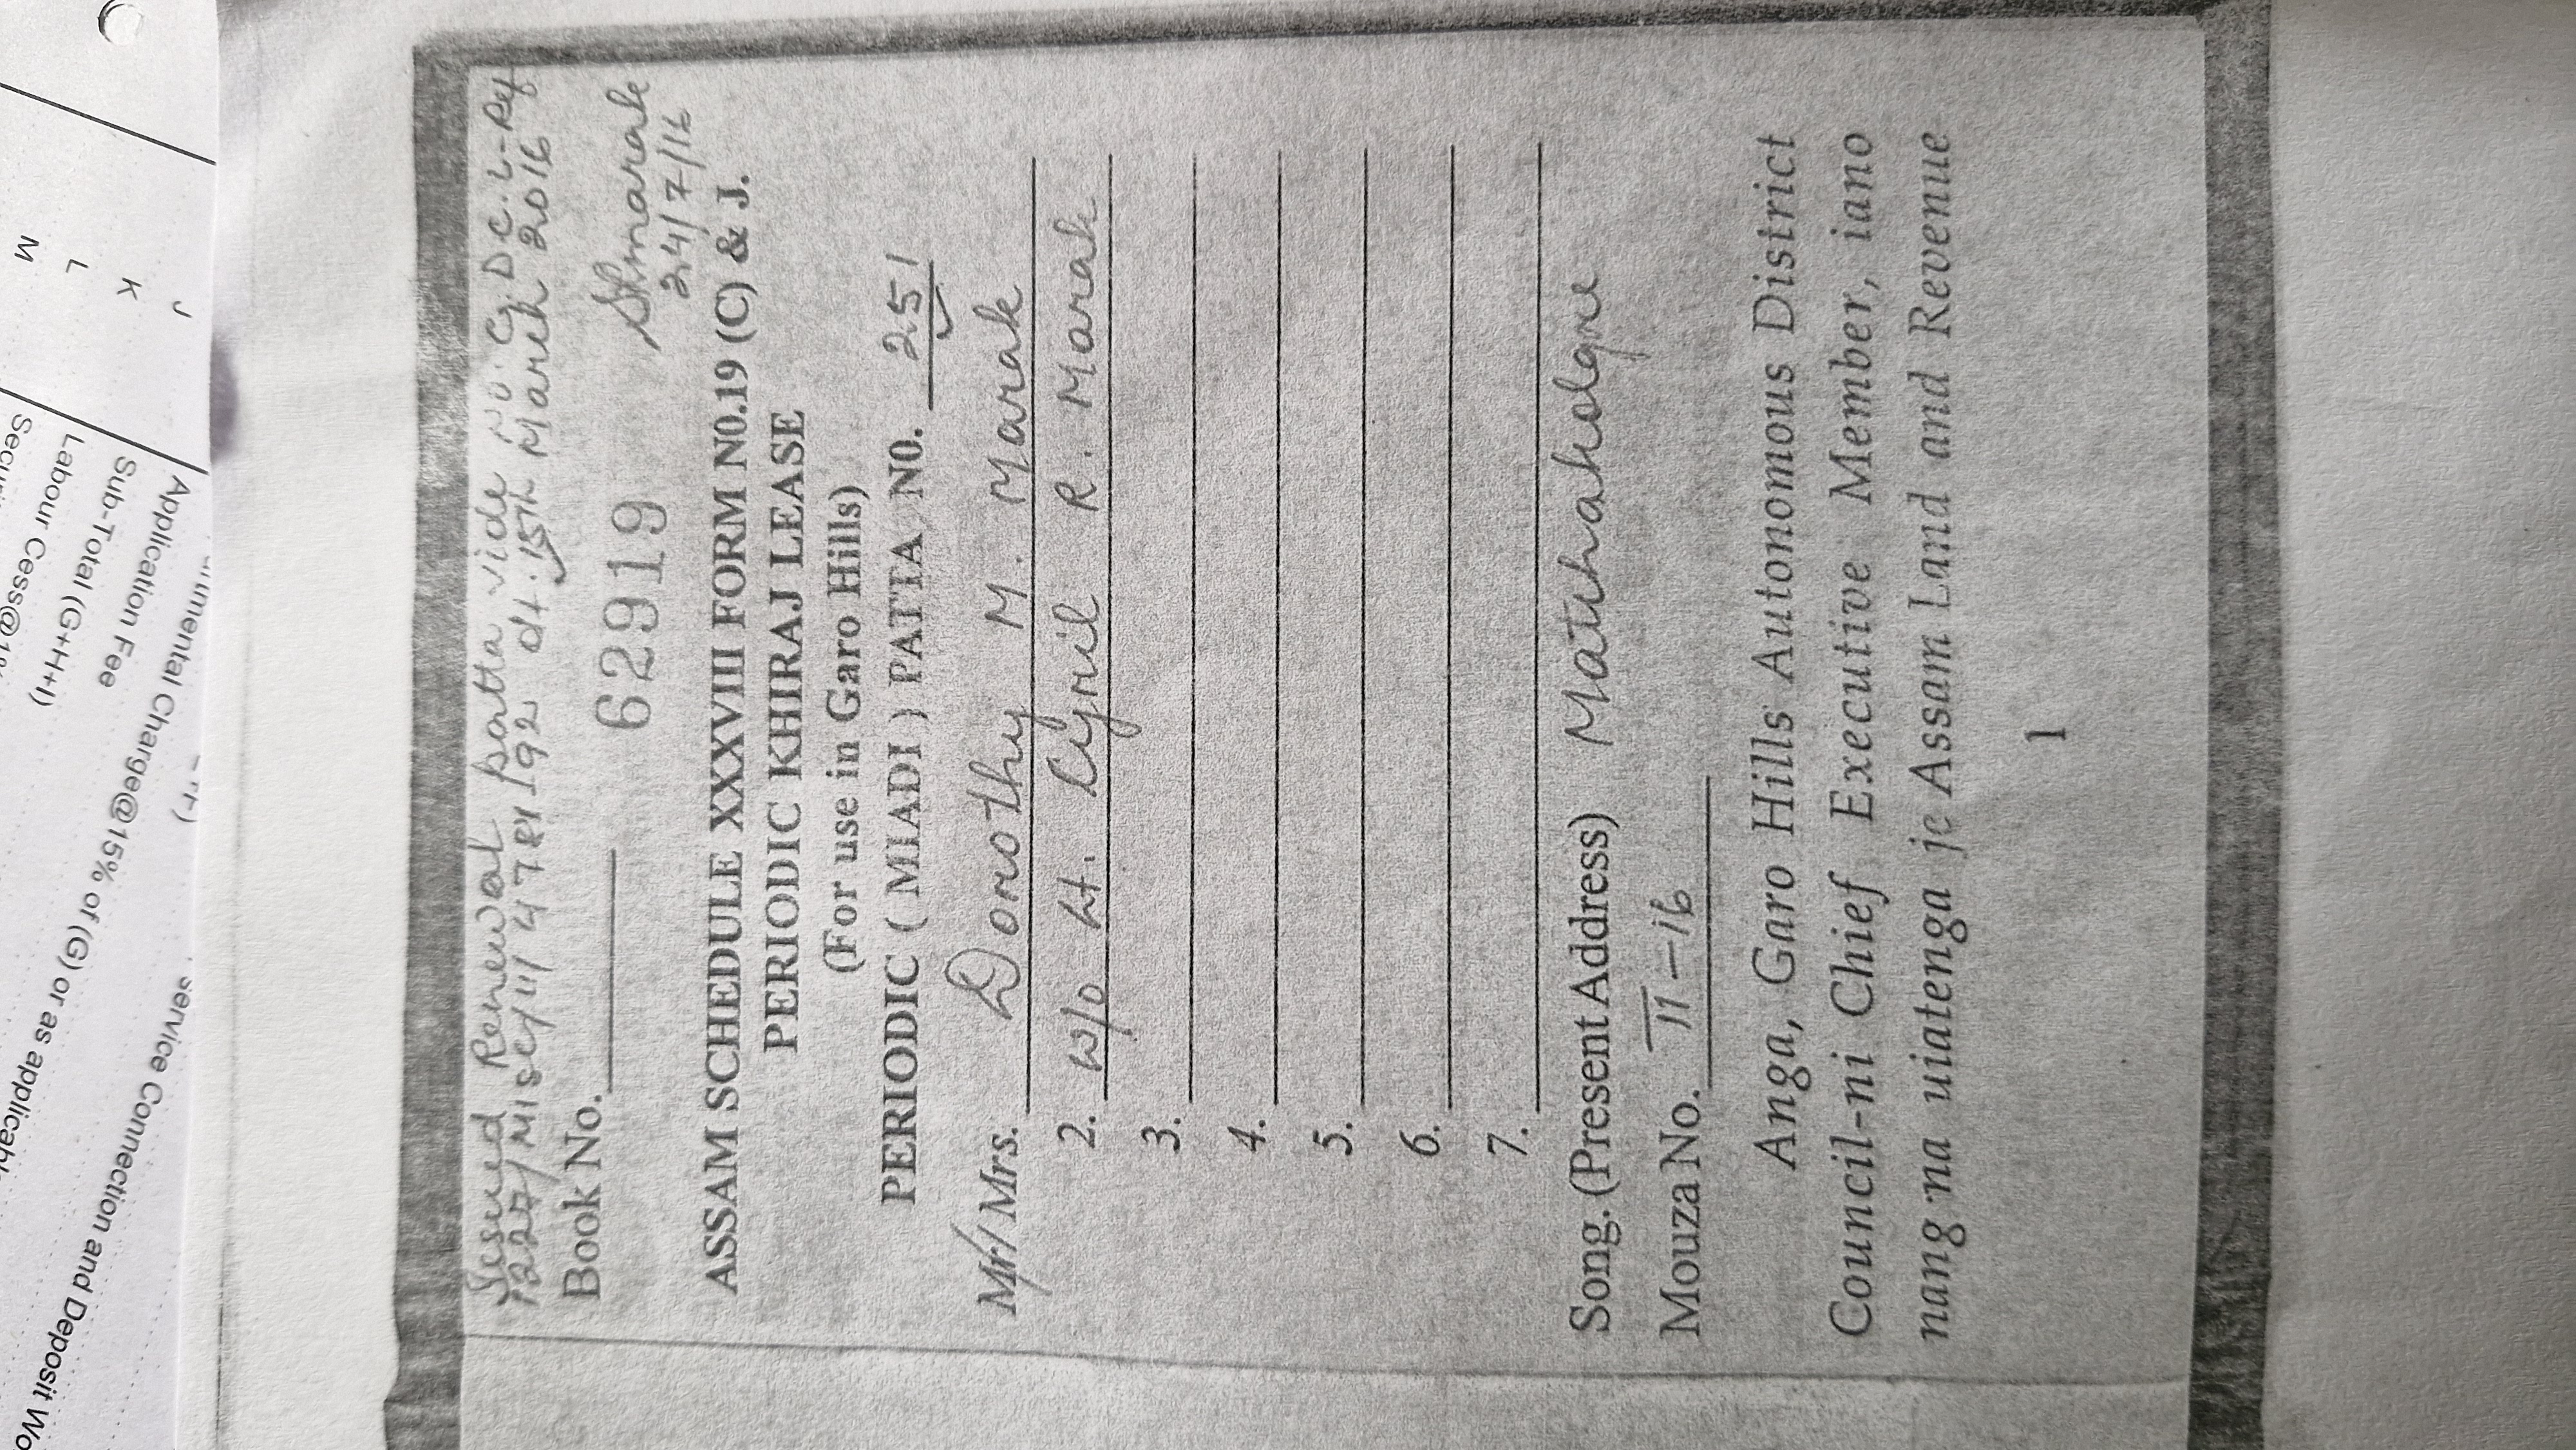 Issued Renewal patta vide No. G.DC.L-Ry
Book No.
dt. 15th March 2016
62919
24/7/16
ASSAM SCHEDULE XXXVIII FORM N0.19 (C) & J.
PERIODIC KHIRAJ LEASE
(For use in Garo Hills)
PERIODIC ( MIADI ) PATTA N0. 251
Mr/Mrs. Dorothy M. Marak
2. W/o Lt. Cyril R. Marak
3.
4.
5.
6.
7.
Song. (Present Address) Matchakolgre
Mouza No. II-16
Anga, Garo Hills Autonomous District
Council-ni Chief Executive Member, iano
nang'na uiatenga je Assam Land and Revenue
1
J
K
L
M
Charge@15% of (G) or as applicable
Application Fee
Sub-Total (G+H+I)
Labour Cess@1%
Service Connection and Deposit